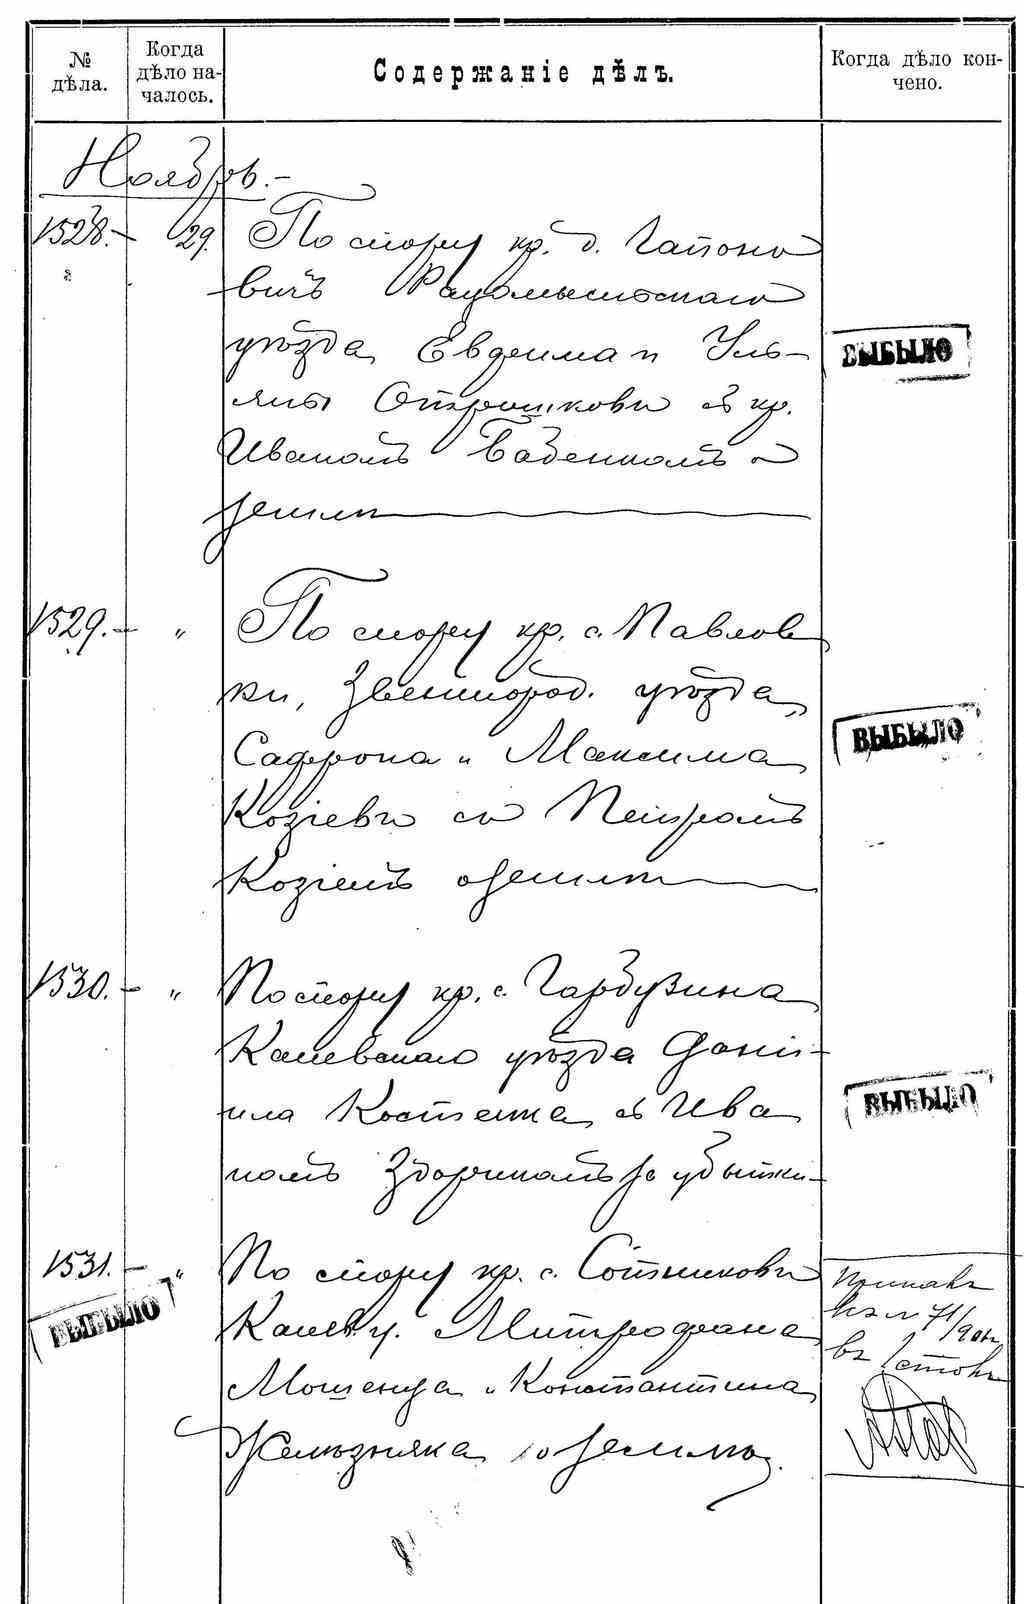 № дѣла.
Когда дѣло на-
чалось.
Содержаніе дѣлъ.
Когда дѣло кон-
чено.
Ноябрь.-
1528.- 29. По спору кр. д. Гапоно
вичъ Радомысльскаго
уѣзда Евдокима и Уль-
яны Отрошковы съ кр.
Иваномъ Бабенкомъ о
землѣ
ВЫБЫЛО
1529.- " По спору кр. с. Павлов
ки, Звенигород. уѣзда,
Сафрона и Максима
Козіевы съ Петромъ
Козіемъ о землѣ
ВЫБЫЛО
1530.- " По спору кр. с. Гарбузина
Каневскаго уѣзда Дані-
ила Костенка съ Ива
номъ за убытки-
ВЫБЫЛО
1531.- " По спору кр. с. Сотниковъ
Канев. у. Митрофана
Мошенца и Константина
Желѣзняка о землѣ.
ВЫБЫЛО
71/90
въ 1 столъ